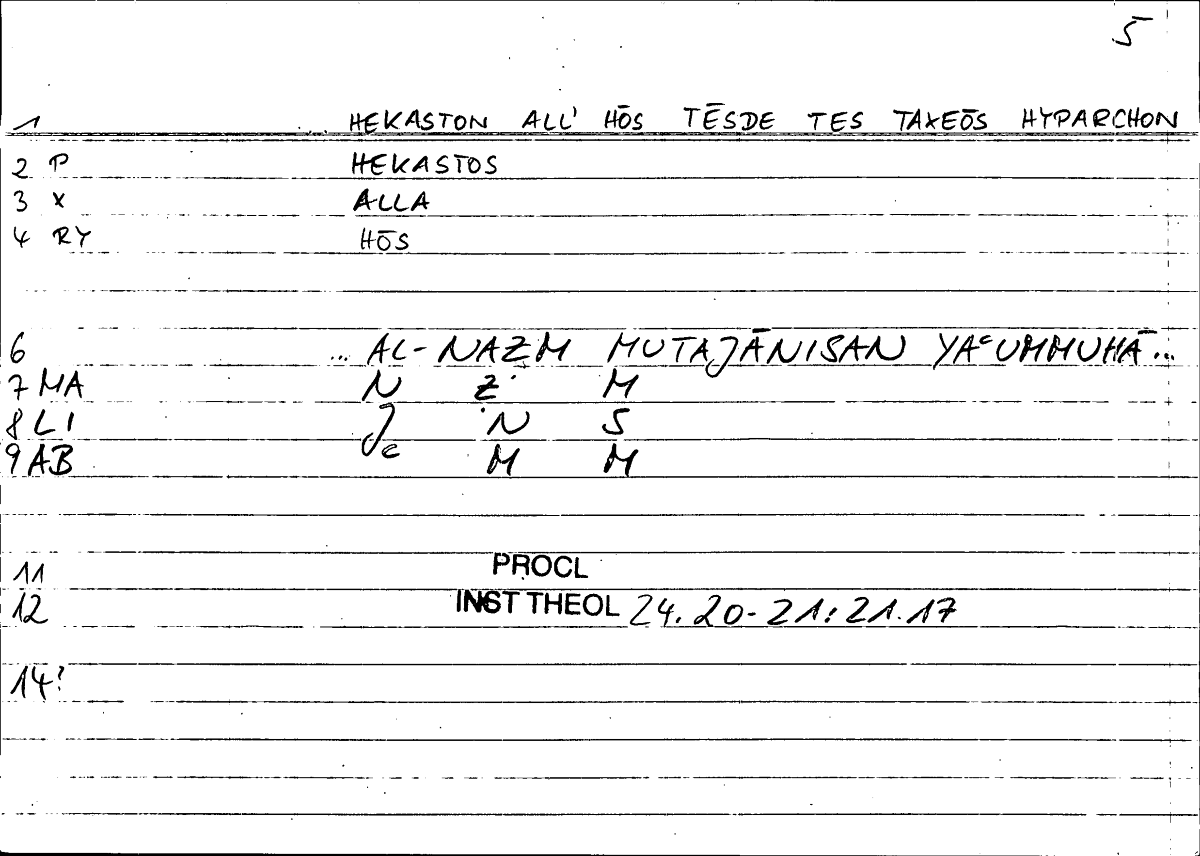 5
1 ... HEKASTON ALL' HŌS TĒSDE TES TAXEŌS HYPARCHON
2 P HEKASTOS
3 X ALLA
4 RY HŌS
6 ... AL-NAẒM MUTAJĀNISAN YAʿUMMUHĀ...
7 MA N Ẓ M
8 LI J N S
9 AB ʿ M M
11 PROCL
12 INST THEOL 24.20-21:21.17
14?